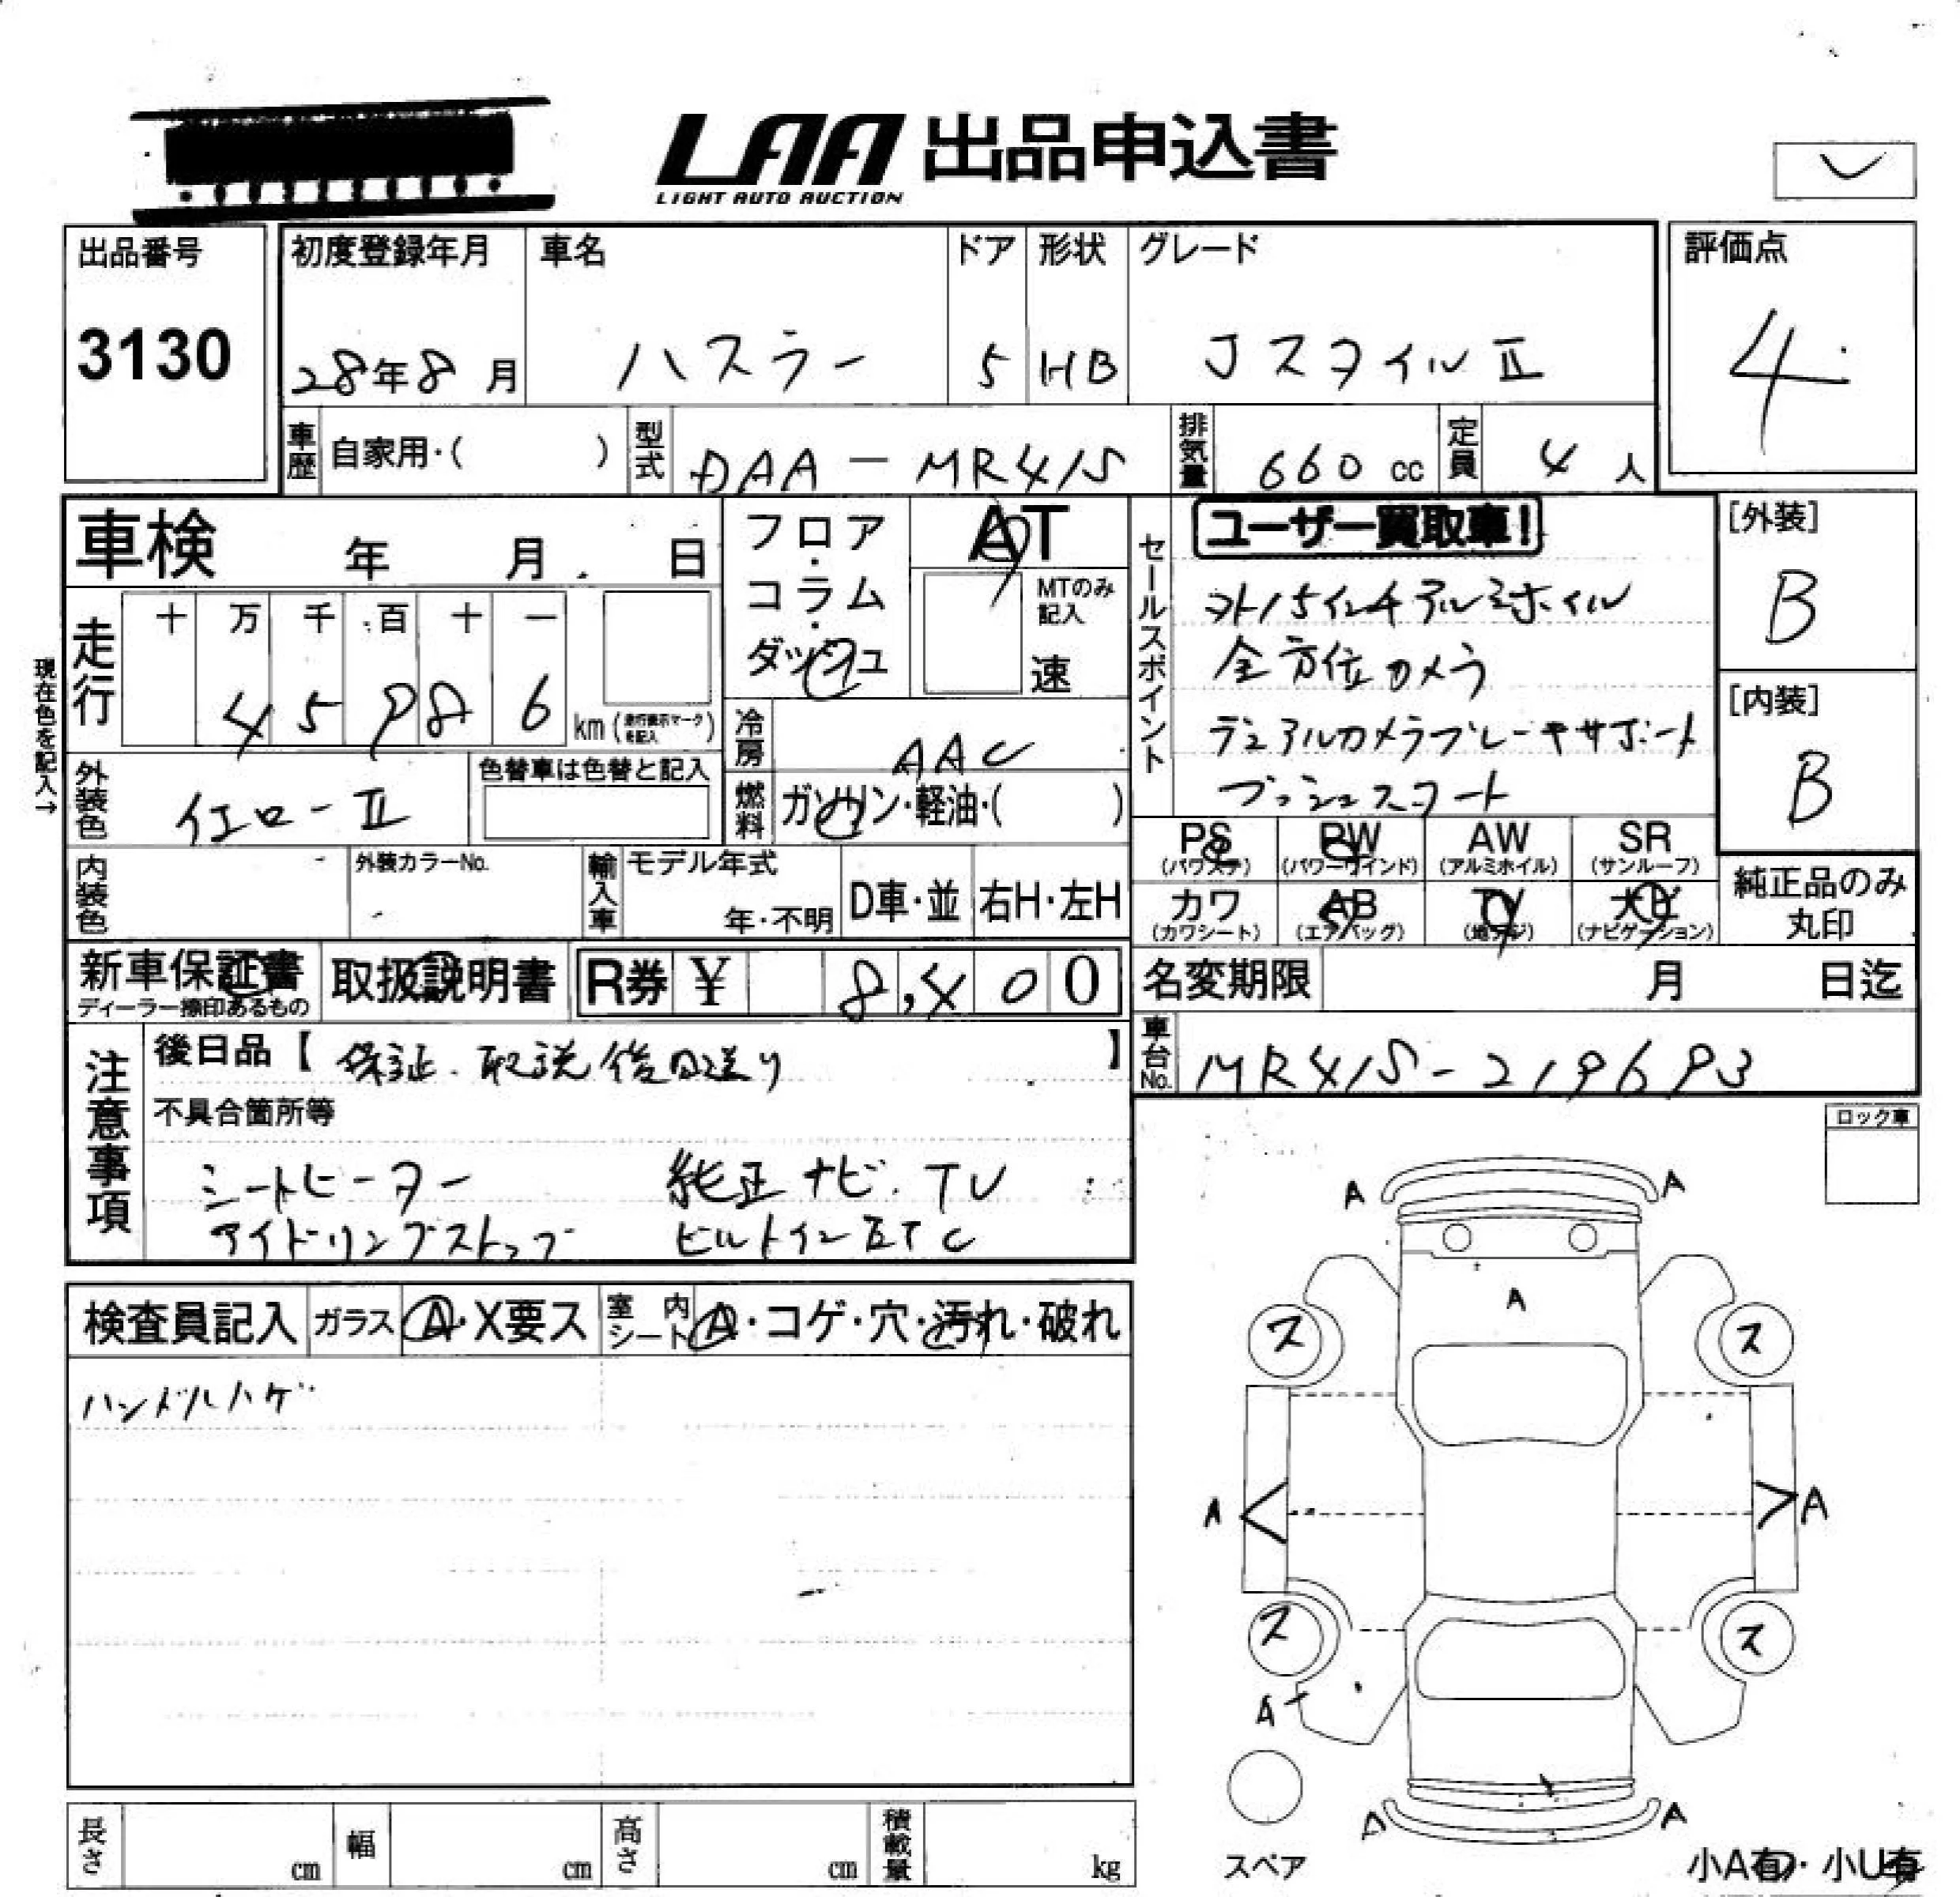 LAA 出品申込書
LIGHT AUTO AUCTION
出品番号
3130
初度登録年月
28年8月
車名
ハスラー
ドア
5
形状
HB
グレード
JスタイルⅡ
評価点
4
車歴
自家用・( )
型式
DAA-MR41S
排気量
660 cc
定員
4 人
車検 年 月 日
フロア・コラム・ダッシュ
AT
MTのみ記入
速
セールスポイント
ユーザー買取車!
外15インチアルミホイル
全方位カメラ
デュアルカメラブレーキサポート
プッシュスタート
[外装]
B
[内装]
B
現在色を記入→
走行
十 万 千 百 十 一
4 5 9 8 6
km (走行表示マークを記入)
冷房
AAC
外装色
イエローⅡ
色替車は色替と記入
燃料
ガソリン・軽油・( )
PS
(パワステ)
PW
(パワーウインド)
AW
(アルミホイル)
SR
(サンルーフ)
カワ
(カワシート)
AB
(エアバッグ)
TV
(地デジ)
ナビ
(ナビゲーション)
純正品のみ
丸印
内装色
外装カラーNo.
輸入車
モデル年式
年・不明
D車・並
右H・左H
新車保証書
ディーラー捺印あるもの
取扱説明書
R券 ¥ 8,400
名変期限 月 日迄
車台No.
MR41S-219693
注意事項
後日品【保証.取説後日送り】
不具合箇所等
シートヒーター 純正ナビ.TV
アイドリングストップ ビルトインETC
ロック車
検査員記入
ガラス
A・X要ス
室内シート
A・コゲ・穴・汚れ・破れ
ハンドルハゲ
A A
A
ス ス
A A
ス ス
A
A A
スペア
小A有・小U有
長さ cm
幅 cm
高さ cm
積載量 kg